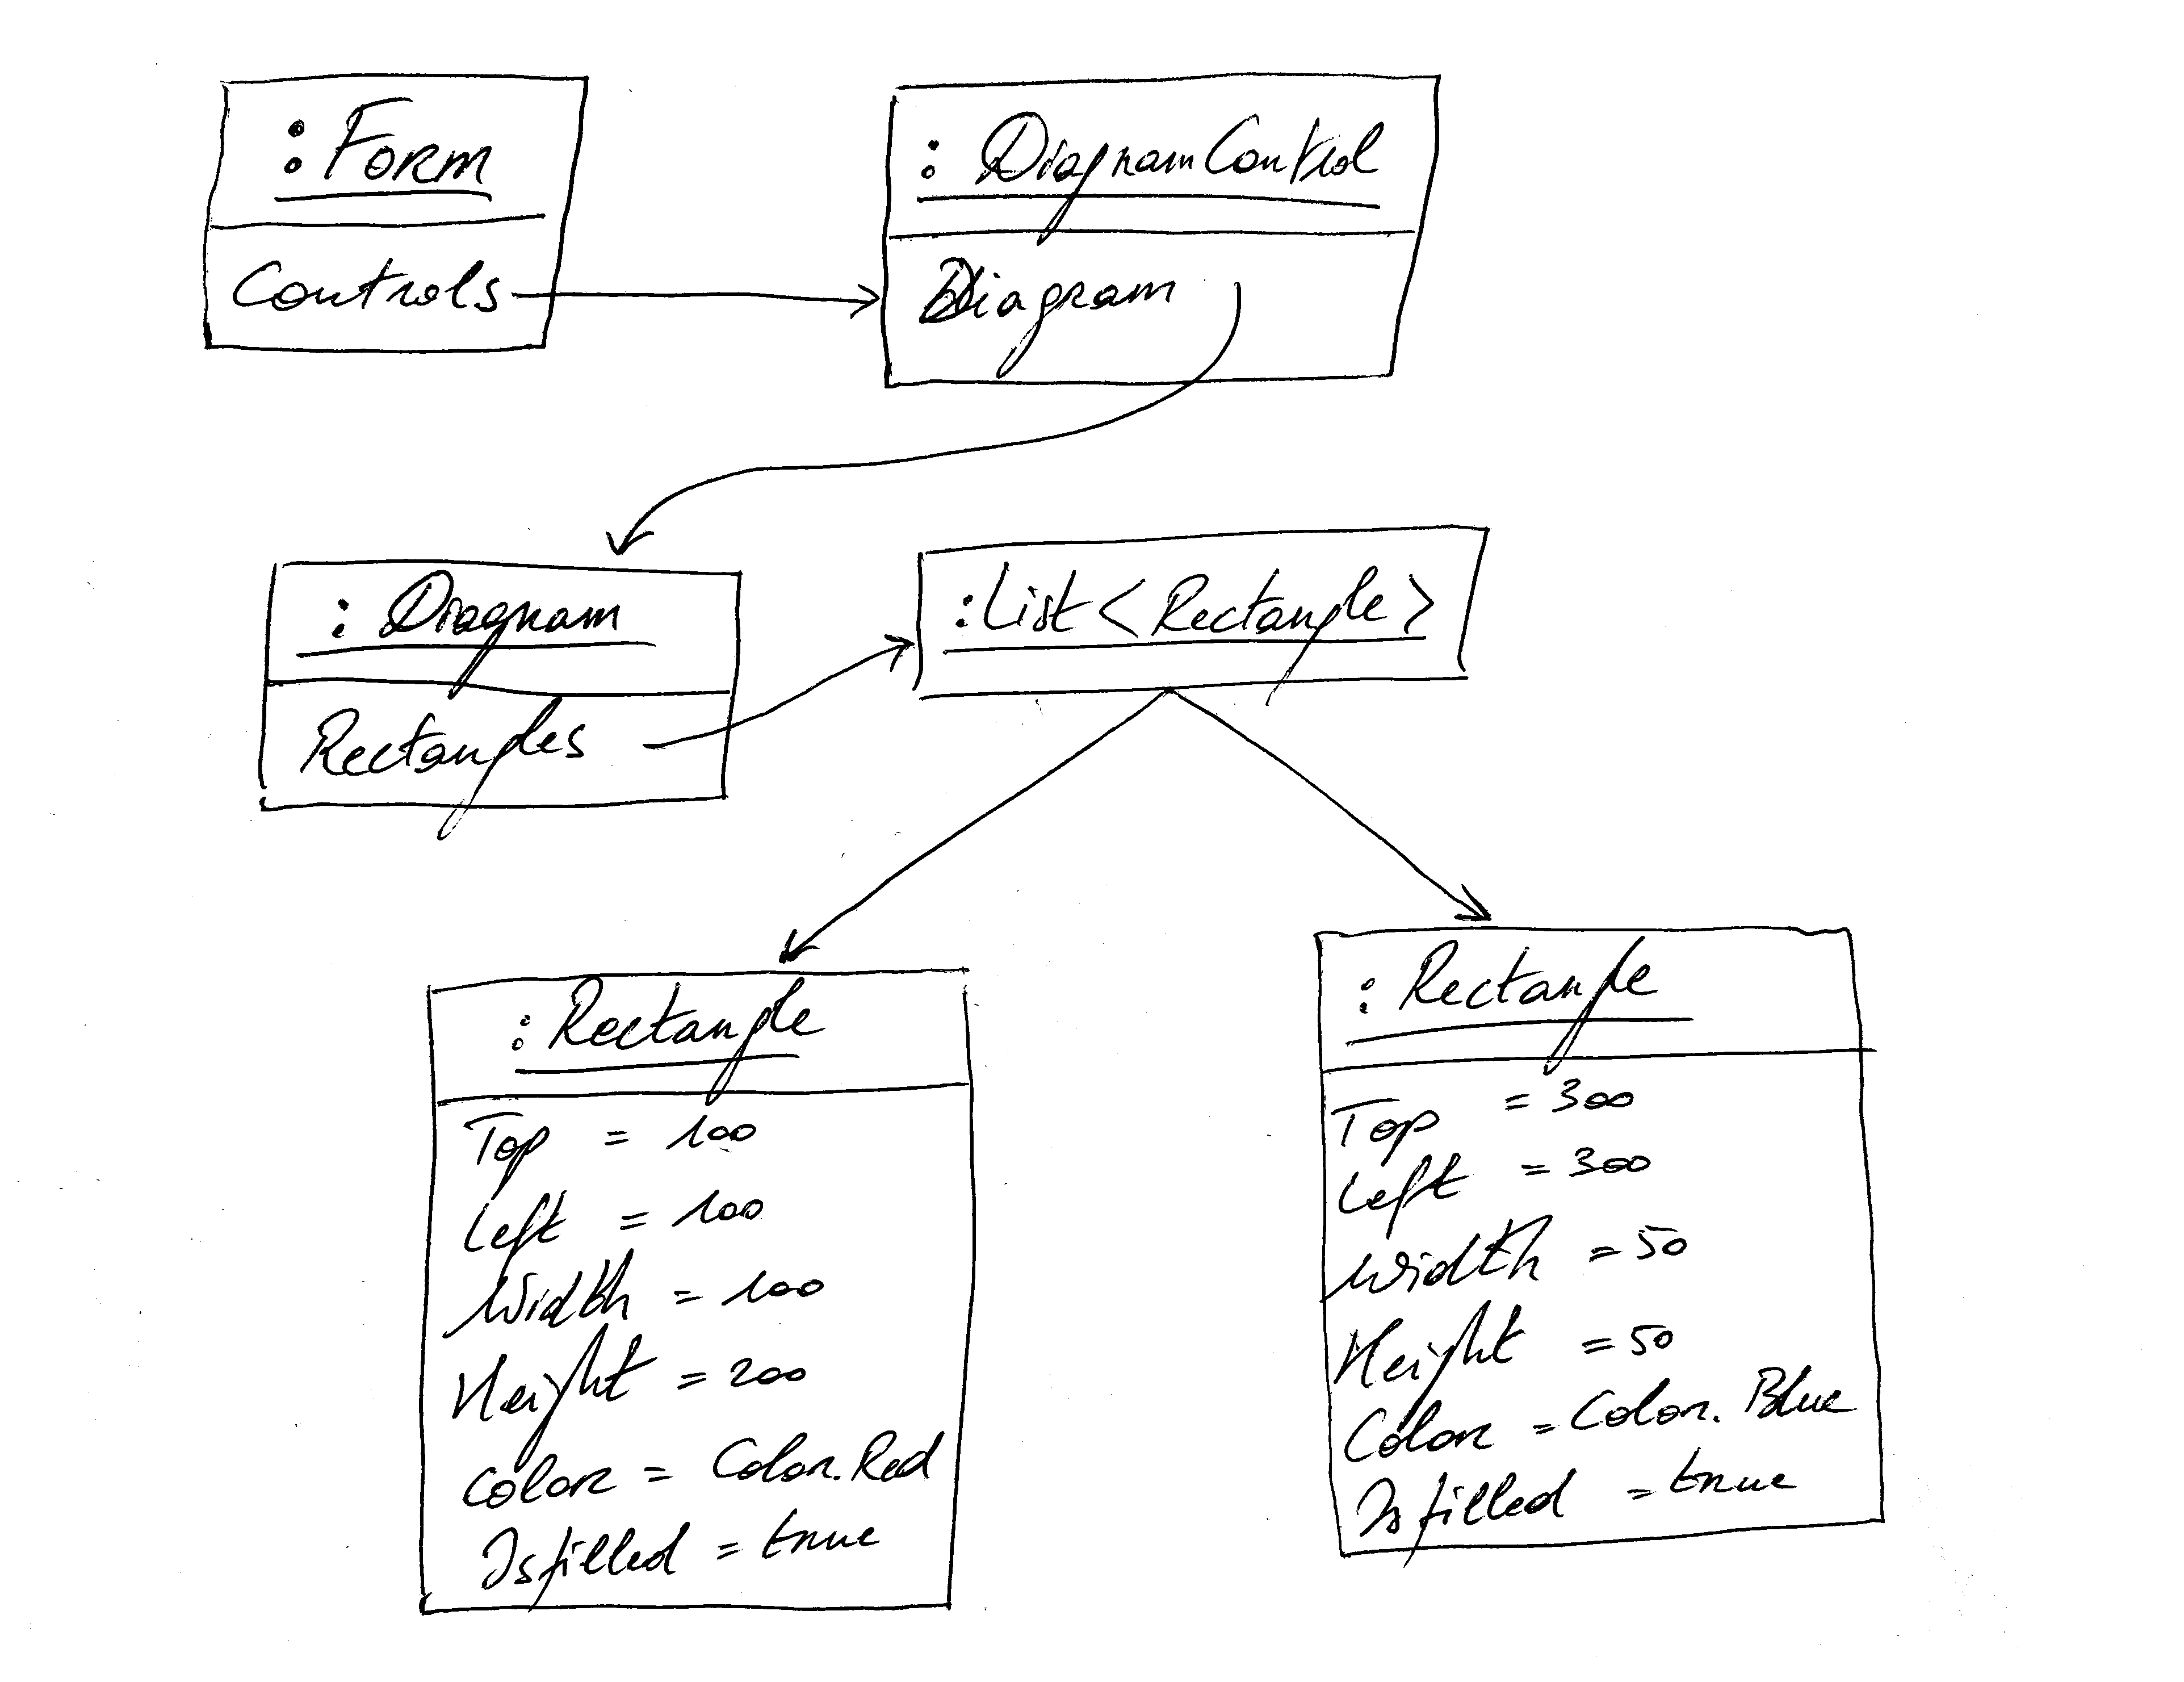 :Form
Controls
: DiagramControl
Diagram
: Diagram
Rectangles
:List<Rectangle>
:Rectangle
Top = 100
Left = 100
Width = 100
Height = 200
Color = Color.Red
Isfilled = true
: Rectangle
Top = 300
Left = 300
Width = 50
Height = 50
Color = Color.Blue
Isfilled = true